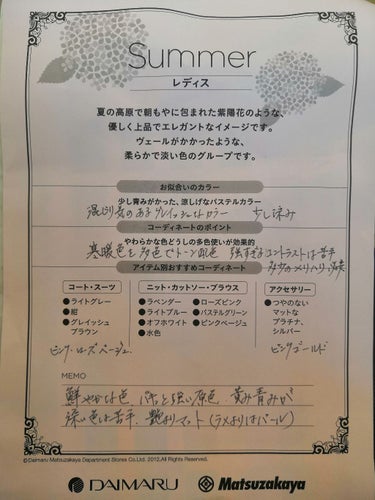 Summer
レディス
夏の高原で朝もやに包まれた紫陽花のような、
優しく上品でエレガントなイメージです。
ヴェールがかかったような、
柔らかで淡い色のグループです。
お似合いのカラー
少し青みがかった、涼しげなパステルカラー
混じり気のあるグレイッシュカラー 少し深み
コーディネートのポイント
やわらかな色どうしの多色使いが効果的
寒暖色を多色でトーン配色 強すぎるコントラストは苦手
多少のメリハリ
アイテム別おすすめコーディネート
コート・スーツ
●ライトグレー
●紺
●グレイッシュ
ブラウン
ピンク・ローズベージュ
ニット・カットソー・ブラウス
●ラベンダー ●ローズピンク
●ライトブルー ●パステルグリーン
●オフホワイト ●ピンクベージュ
●水色
アクセサリー
●つやのない
マットな
プラチナ、
シルバー
ピンクゴールド
MEMO
鮮やかな色 パキッと強い原色、黄み青みが
深い色は苦手、艶よりマット(ラメよりはパール)
©Daimaru Matsuzakaya Department Stores Co.Ltd. 2012.All Rights Reserved.
DAIMARU Matsuzakaya